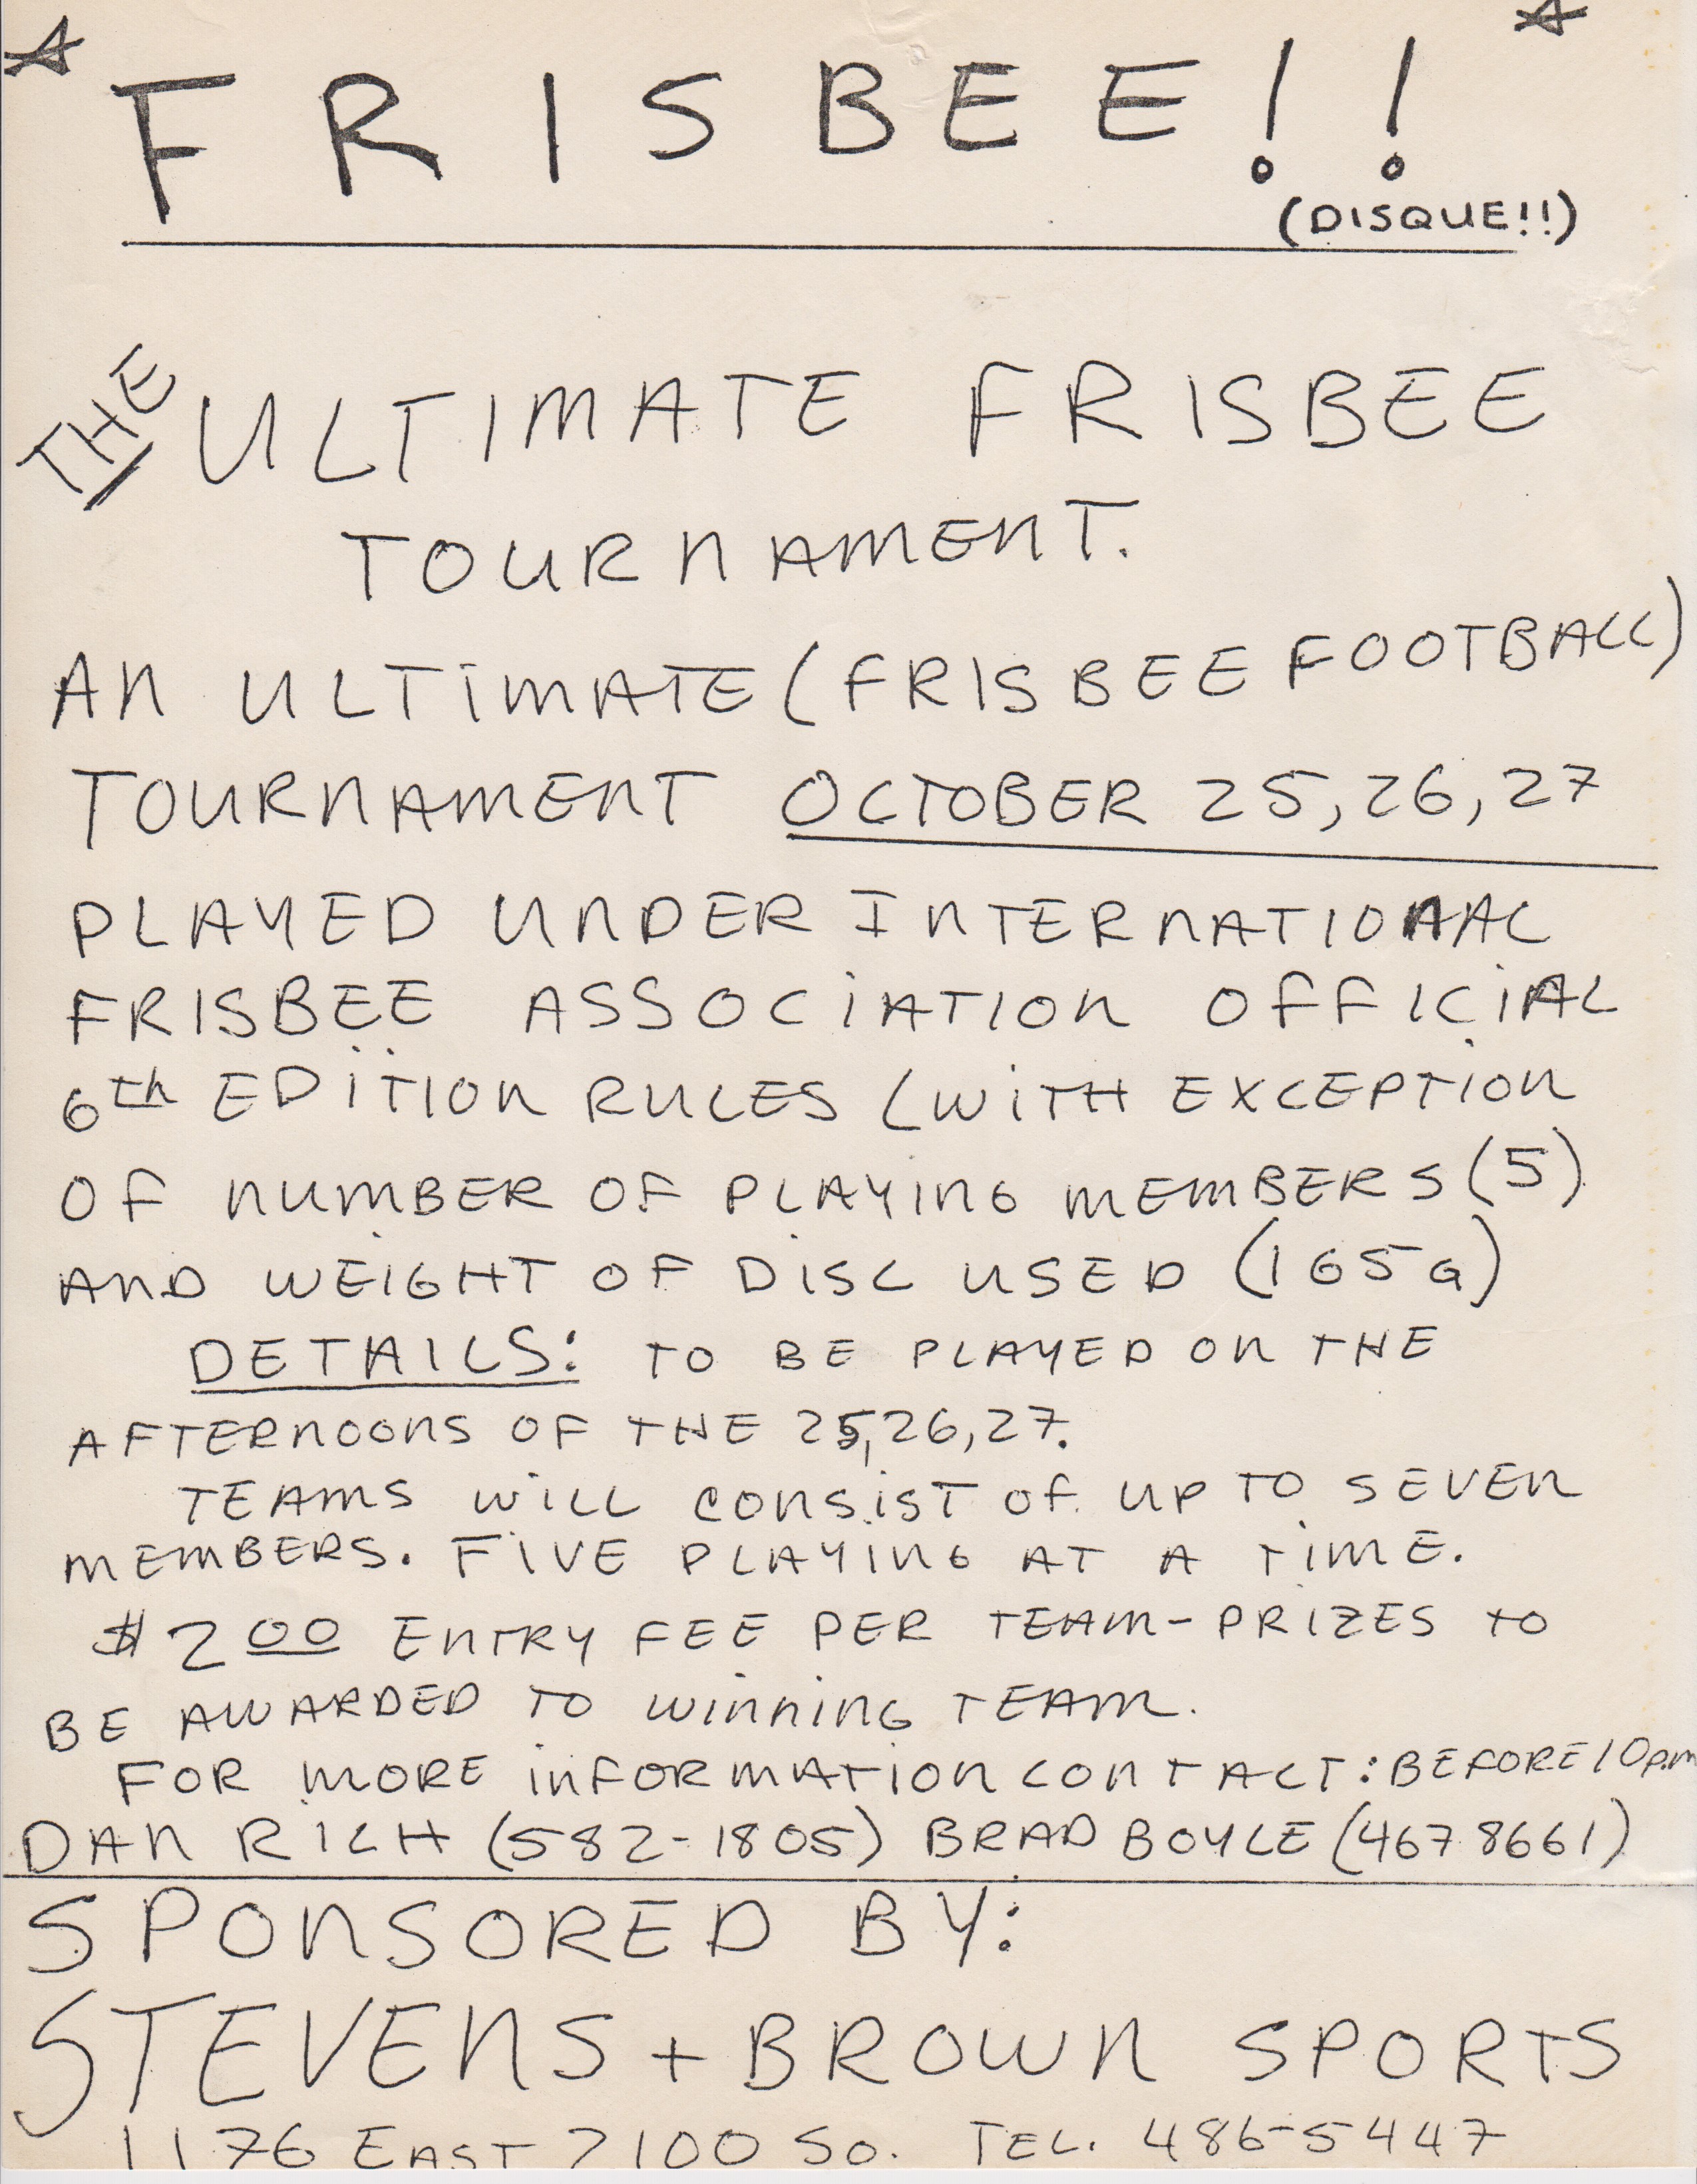 FRISBEE!!
(DISQUE!!)
THE ULTIMATE FRISBEE
TOURNAMENT.
AN ULTIMATE (FRISBEE FOOTBALL)
TOURNAMENT OCTOBER 25, 26, 27
PLAYED UNDER INTERNATIONAL
FRISBEE ASSOCIATION OFFICIAL
6th EDITION RULES (WITH EXCEPTION
OF NUMBER OF PLAYING MEMBERS (5)
AND WEIGHT OF DISC USED (165G)
DETAILS: TO BE PLAYED ON THE
AFTERNOONS OF THE 25, 26, 27.
TEAMS WILL CONSIST OF UP TO SEVEN
MEMBERS. FIVE PLAYING AT A TIME.
$2 00 ENTRY FEE PER TEAM - PRIZES TO
BE AWARDED TO WINNING TEAM.
FOR MORE INFORMATION CONTACT: BEFORE 10 p.m
DAN RICH (582-1805) BRAD BOYLE (467 8661)
SPONSORED BY:
STEVENS + BROWN SPORTS
1176 EAST 7100 SO. TEL. 486-5447